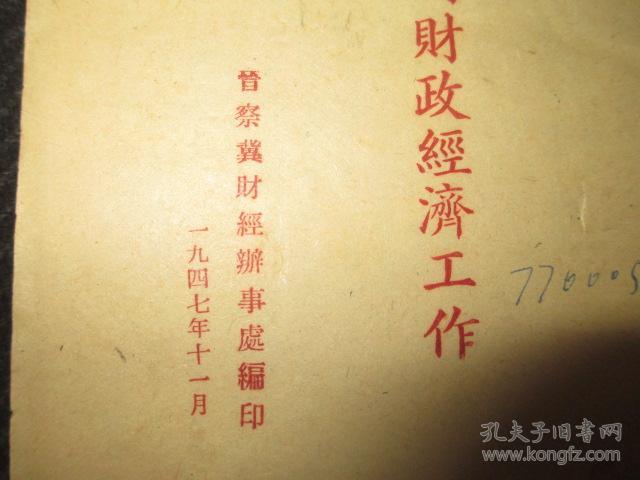 財政經濟工作
晉察冀財經辦事處編印
一九四七年十一月
770005
孔夫子旧书网
www.kongfz.com